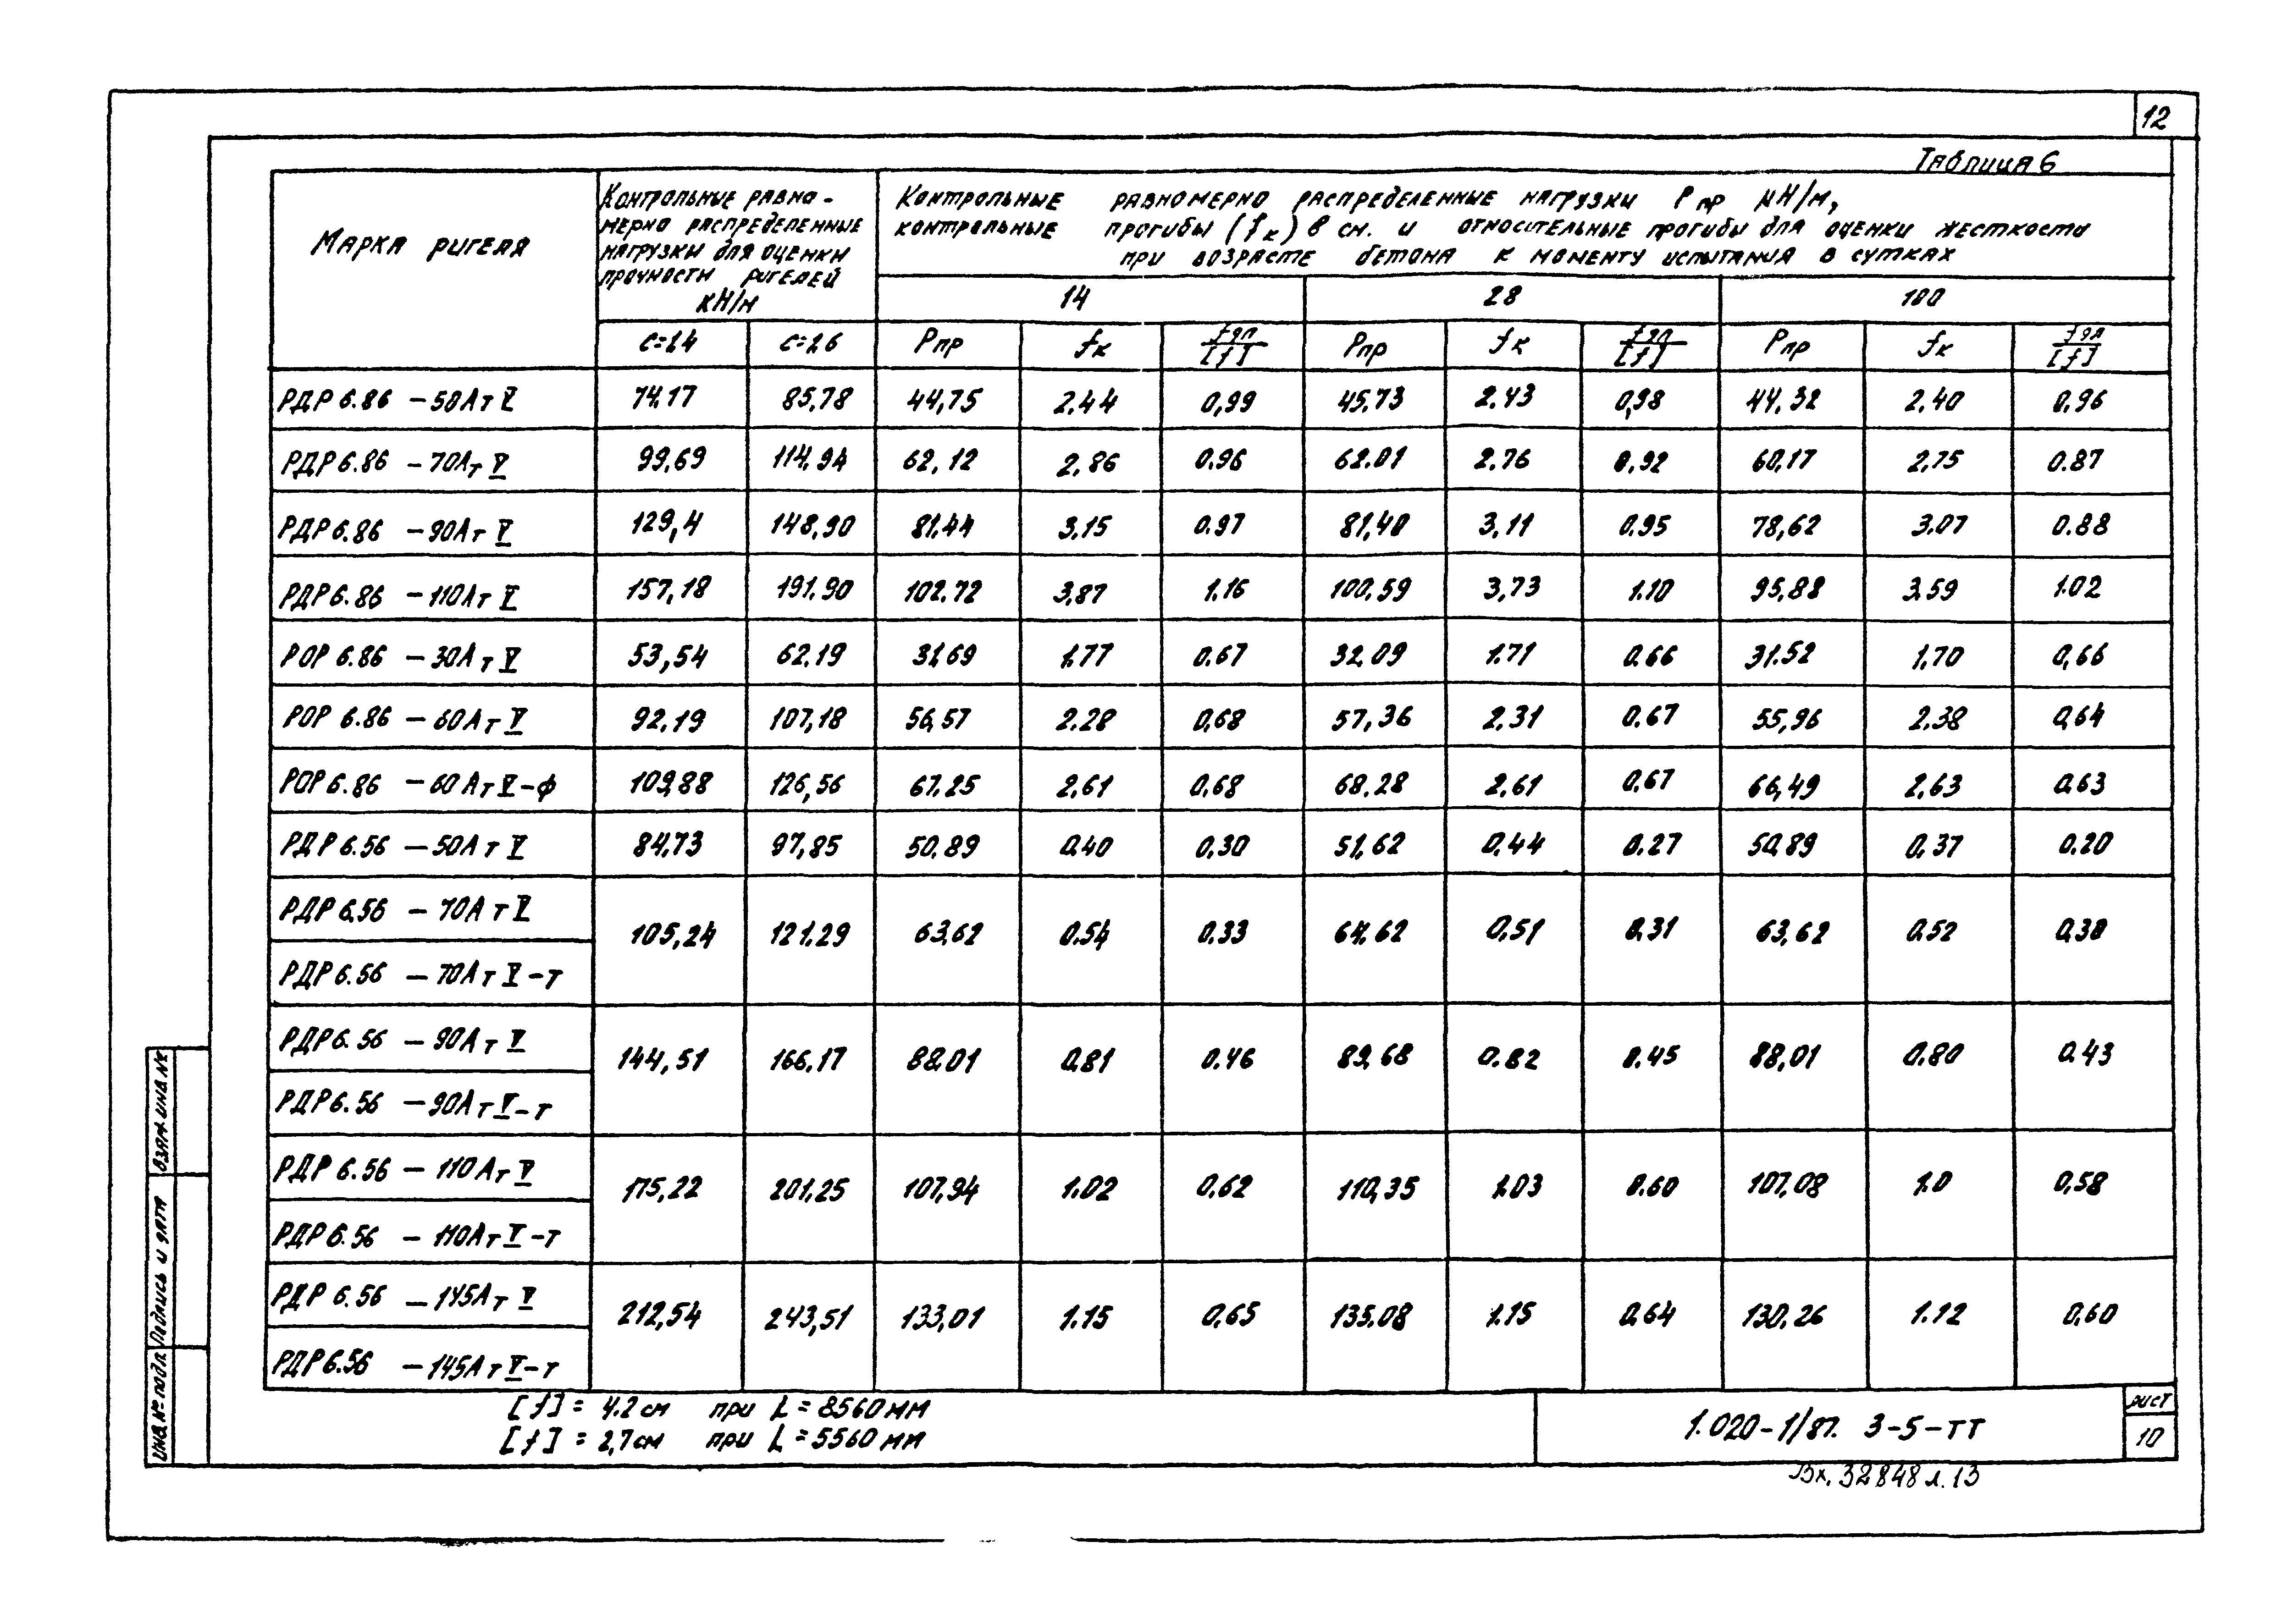 12
Таблица 6
Марка ригеля
Контрольные равно-
мерно распределенные
нагрузки для оценки
прочности ригелей
кН/м
Контрольные равномерно распределенные нагрузки Рпр кН/м,
контрольные прогибы (fк) в см. и относительные прогибы для оценки жесткости
при возрасте бетона к моменту испытания в сутках
14 28 100
с=1.4 с=1.6 Рпр fк fдл/[f] Рпр fк fдл/[f] Рпр fк fдл/[f]
РДР 6.86 – 50Ат V 74,17 85,78 44,75 2,44 0,99 45,73 2.43 0,98 44,32 2,40 0,96
РДР 6.86 – 70Ат V 99,69 114,94 62,12 2,86 0.96 62.01 2,76 0,92 60,17 2,75 0.87
РДР 6.86 – 90Ат V 129,4 148,90 81,44 3,15 0.97 81,40 3,11 0.95 78,62 3.07 0.88
РДР 6.86 – 110Ат V 157,18 191.90 102.72 3,87 1.16 100,59 3,73 1.10 95,88 3.59 1.02
РОР 6.86 – 30Ат V 53,54 62.19 31,69 1.77 0.67 32.09 1.71 0.66 31.52 1,70 0,66
РОР 6.86 – 60Ат V 92,19 107,18 56,57 2.28 0,68 57,36 2,31 0.67 55,96 2.38 0,64
РОР 6.86 – 60Ат V–ф 109,88 126,56 67.25 2,61 0,68 68,28 2,61 0,67 66,49 2,63 0,63
РДР 6.56 – 50Ат V 84,73 97,85 50,89 0,40 0,30 51,62 0,44 0.27 50,89 0,37 0.20
РДР 6.56 – 70Ат V
105,24 121.29 63,62 0.54 0.33 64.62 0,51 0,31 63,62 0,52 0,30
РДР 6.56 – 70Ат V–т
РДР 6.56 – 90Ат V
144,51 166,17 88,01 0,81 0.46 89,68 0.82 0.45 88,01 0,80 0.43
РДР 6.56 – 90Ат V–т
РДР 6.56 – 110Ат V
175,22 201,25 107,94 1.02 0,62 110,35 1.03 0.60 107,08 1.0 0,58
РДР 6.56 – 110Ат V–т
РДР 6.56 – 145Ат V
212,54 243,51 133,01 1.15 0,65 135.08 1.15 0,64 130,26 1.12 0,60
РДР 6.56 – 145Ат V–т
[f] = 4.2 см при L = 8560 мм
[f] = 2,7 см при L = 5560 мм
1.020-1/87. 3-5-ТТ
лист
10
Вх. 32848 л.13
Взам. инв №
Подпись и дата
Инв № подл